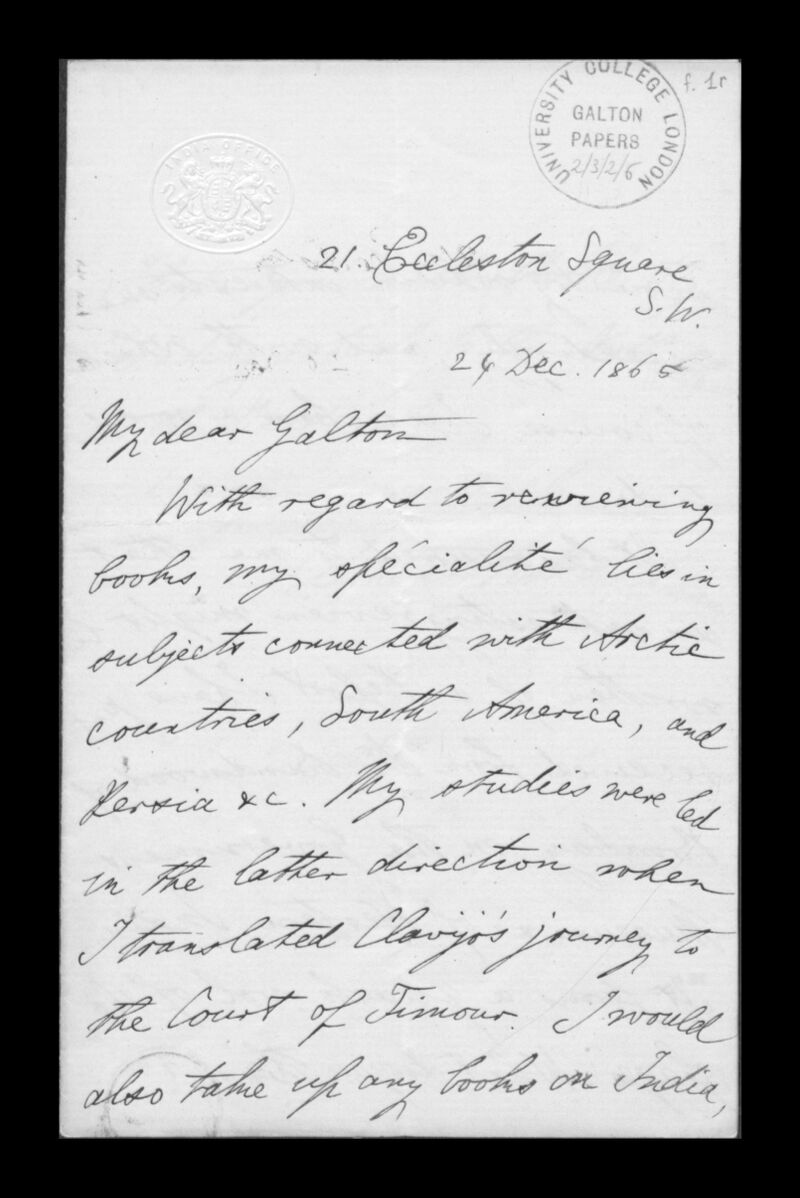 f. 1r
UNIVERSITY COLLEGE LONDON
GALTON
PAPERS
2/3/2/6
INDIA OFFICE
21. Eccleston Square
S.W.
24 Dec. 1865
My dear Galton
With regard to reviewing
books, my spécialité lies in
subjects connected with Arctic
countries, South America, and
Persia &c. My studies were led
in the latter direction when
I translated Clavijo's journey to
the Court of Timour. I would
also take up any books on India,